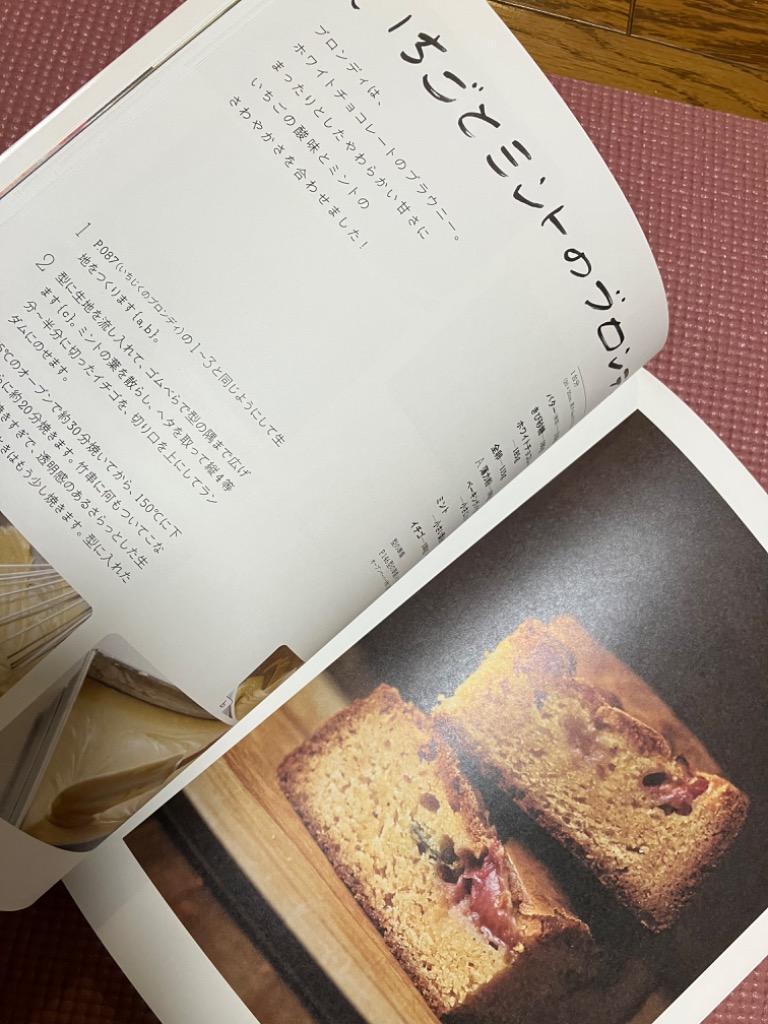 いちごとミントのブロン
ブロンディは、
ホワイトチョコレートのブラウニー。
まったりとしたやわらかい甘さに
いちごの酸味とミントの
さわやかさを合わせました！
1 P.087(いちじくのブロンディ)の1〜3と同じようにして生
地をつくります{a,b}。
2 型に生地を流し入れて、ゴムべらで型の隅まで広げ
ます{c}。ミントの葉を散らし、ヘタを取って縦4等
分〜半分に切ったイチゴを、切り口を上にしてラン
ダムにのせます。
5℃のオーブンで約30分焼いてから、150℃に下
らに約20分焼きます。竹串に何もついてこな
焼きすぎで、透明感のあるさらっとした生
ときはもう少し焼きます。型に入れた
1台分
バター
きび砂糖
ホワイトチョコ
全卵
A 薄力粉
ベーキング
ミント
イチゴ
型の準備